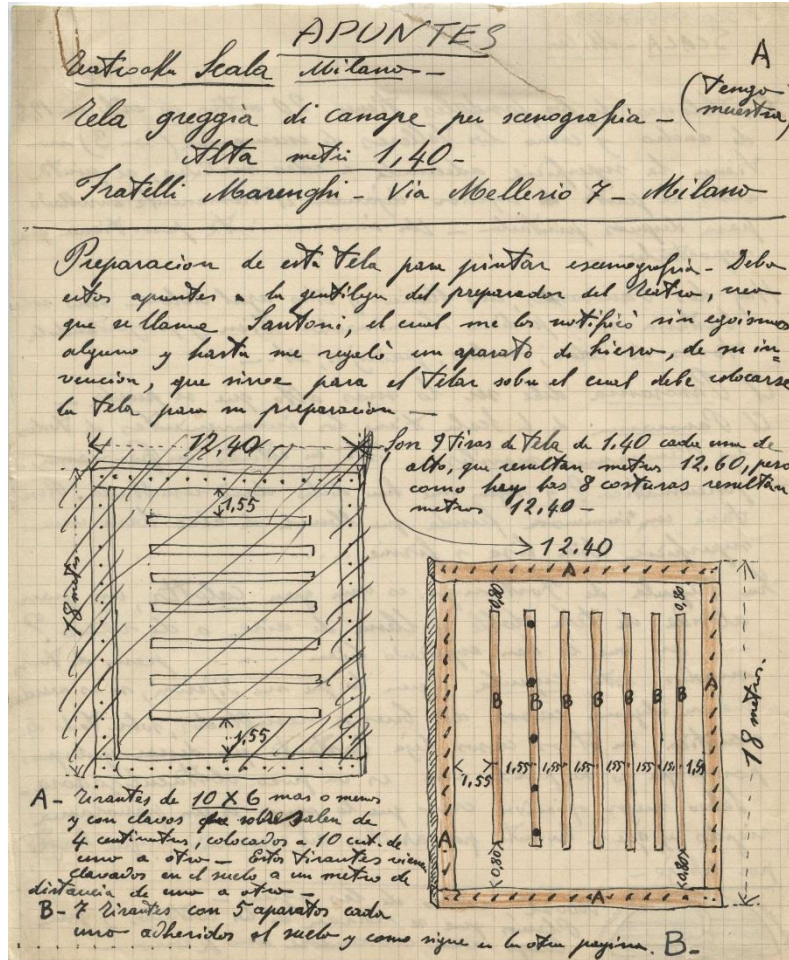 APUNTES
A
Teatro alla Scala Milano -
(Tengo muestra)
Tela greggia di canape per scenografia -
Alta metri 1,40 -
Fratelli Marenghi - Via Mellerio 7 - Milano
Preparacion de esta Tela para pintar escenografia - Debo
estos apuntes a la gentileza del preparador del Teatro, creo
que se llama Santoni, el cual me los notificò sin egoismo
alguno y hasta me regalò un aparato de hierro, de su in=
vencion, que sirve para el Telar sobre el cual debe colocarse
la Tela para su preparacion -
12,40
Son 9 Tiras de Tela de 1.40 cada una de
alto, que resultan metros 12,60, pero
como hay las 8 costuras resultan
metros 12,40 -
1,55
18 metros
1,55
12.40
A
0,80
0,80
B B B B B B B
A
1,55 1,55 1,55 1,55 1,55 1,55 1,55 1,55
18 metros.
A
0,80
0,80
A
A - Tirantes de 10 X 6 mas o menos
y con clavos que sobresalen de
4 centimetros, colocados a 10 cent. de
uno a otro - Estos Tirantes vienen
clavados en el suelo a un metro de
distancia de uno a otro -
B - 7 Tirantes con 5 aparatos cada
uno adheridos al suelo y como sigue en la otra pagina. B -